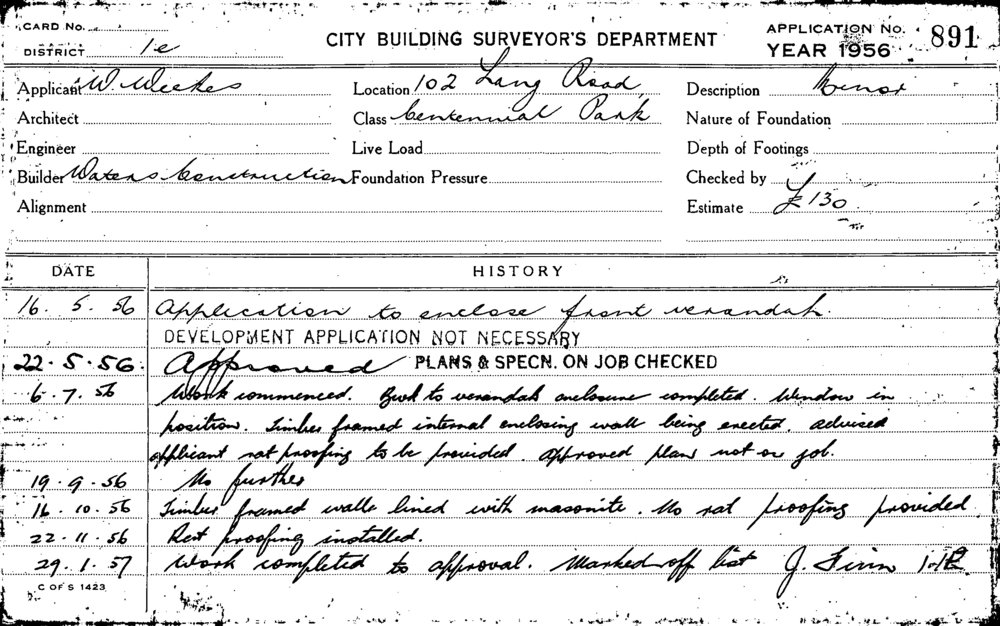 CARD No.
DISTRICT 1e
CITY BUILDING SURVEYOR'S DEPARTMENT
APPLICATION No. 891
YEAR 1956
Applicant W. Weekes
Location 102 Lang Road
Description Minor
Architect
Class Centennial Park
Nature of Foundation
Engineer
Live Load
Depth of Footings
Builder Waters Construction
Foundation Pressure
Checked by
Alignment
Estimate £130
DATE HISTORY
16. 5. 56 Application to enclose front verandah.
DEVELOPMENT APPLICATION NOT NECESSARY
22.5.56. Approved PLANS & SPECN. ON JOB CHECKED
6. 7. 56 Work commenced. Bwk to verandah enclosure completed. Window in
position. Timber framed internal enclosing wall being erected. Advised
applicant rat proofing to be provided. Approved plan not on job.
19. 9. 56 No further
16. 10. 56 Timber framed walls lined with masonite. No rat proofing provided
22. 11. 56 Rat proofing installed.
29. 1. 57 Work completed to approval. Marked off list J. Finn
C OF S 1423